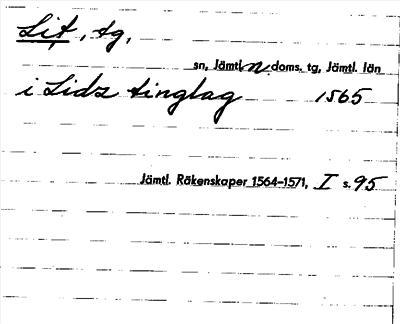 Lit, tg,
sn, Jämtl. n doms. tg, Jämtl. län
i Lidz tinglag 1565
Jämtl. Räkenskaper 1564–1571, I s. 95